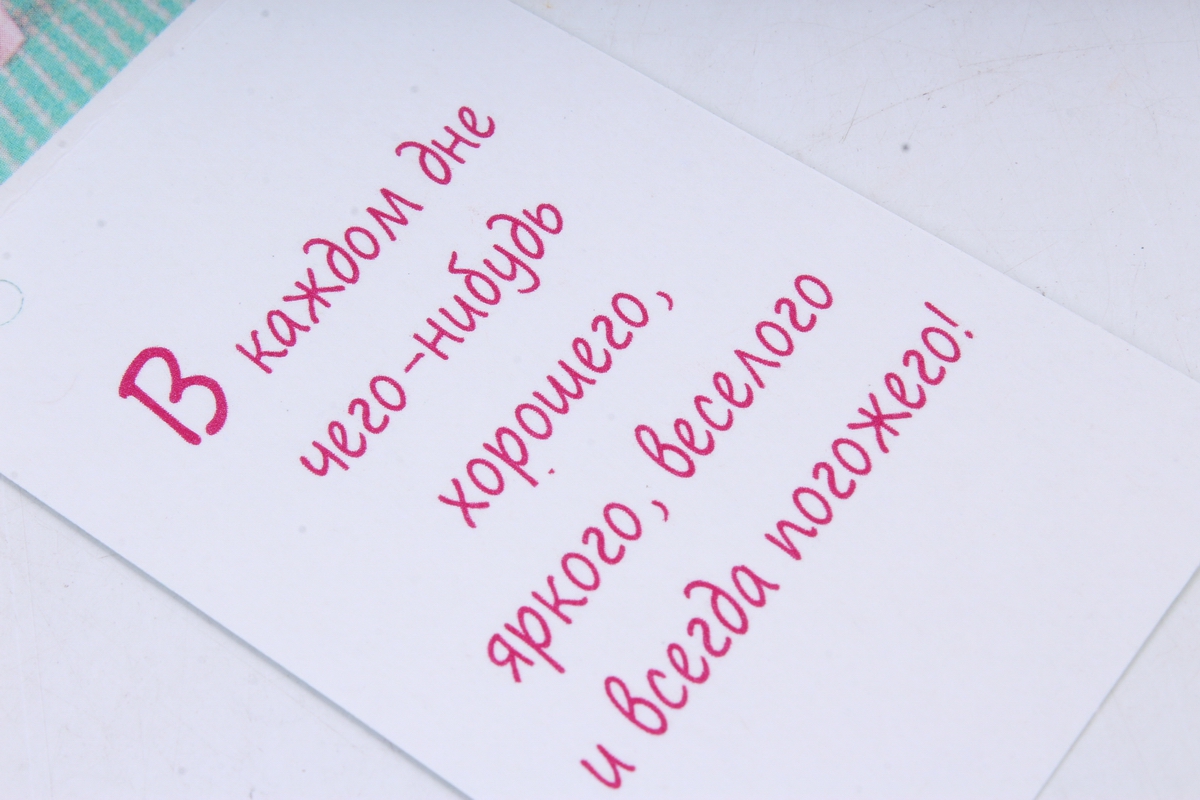 В каждом дне
чего-нибудь
хорошего,
яркого, веселого
и всегда погожего!